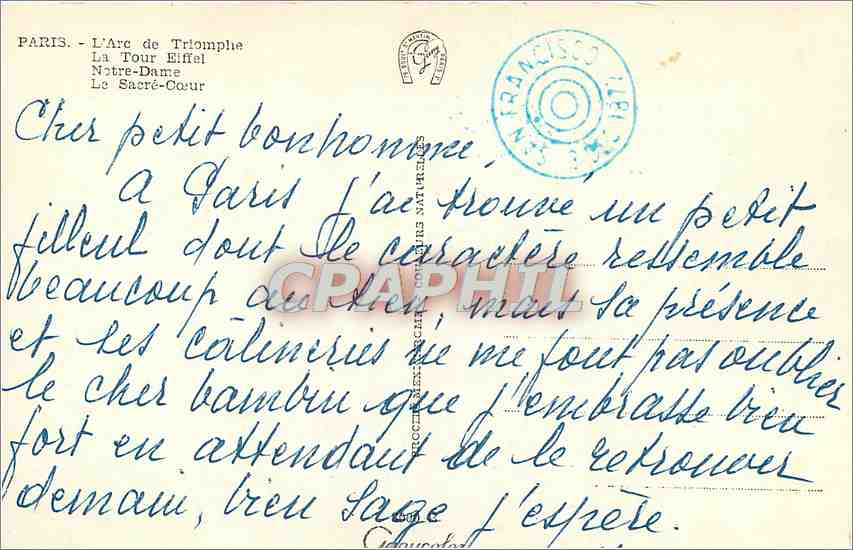 PARIS. - L'Arc de Triomphe
La Tour Eiffel
Notre-Dame
Le Sacré-Cœur
SAN FRANCISCO 1877
Cher petit bonhomme,
A Paris j'ai trouvé un petit
filleul dont le caractère ressemble
beaucoup au tien, mais sa présence
et ses câlineries ne me font pas oublier
le cher bambin que j'embrasse bien
fort en attendant de le retrouver
demain, bien sage j'espère.
COULEURS NATURELLES
CPAPHIL